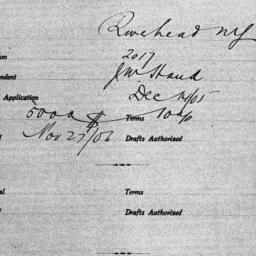 Riverhead NY
on 2017
ndent J W Hand
Application Dec 14/05
5000 $ Terms 10%
d Nov 27/06 Drafts Authorized
al Terms
d Drafts Authorized